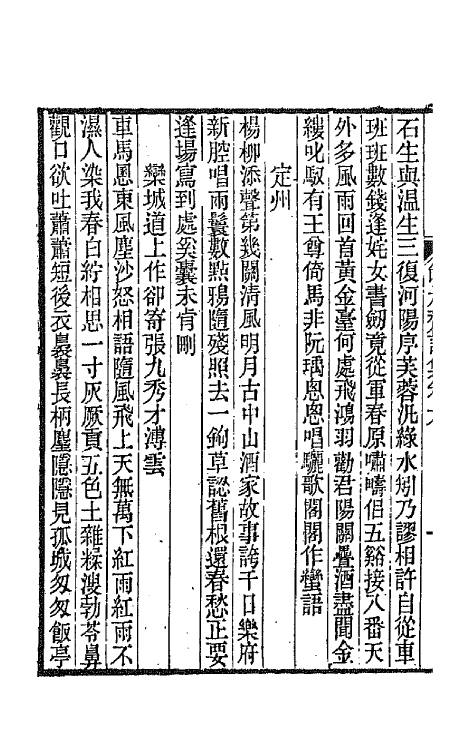 石生與温生三復河陽序芙蓉汎綠水矧乃謬相許自從車
班班數錢逢姹女書劒竟從軍春原嘯疇侣五谿接八番天
外多風雨回首黃金臺何處飛鴻羽勸君陽關疊酒盡聞金
縷叱馭有王尊倚馬非阮瑀恩恩唱驪歌閣閣作蠻語
定州
楊柳添聲第幾關清風明月古中山酒家故事誇千日樂府
新腔唱雨鬟數點鴉隨殘照去一鉤草認舊根還春愁正要
逢塲寫到處奚囊未肯刪
欒城道上作卻寄張九秀才溥雲
車馬恩東風塵沙怒相語隨風飛上天無萬下紅雨紅雨不
濕人染我春白紵相思一寸灰厥貢五色土雜糅溲勃苓鼻
觀口欲吐蕭蕭短後衣裊裊長柄麈隱隱見孤城匆匆飯亭